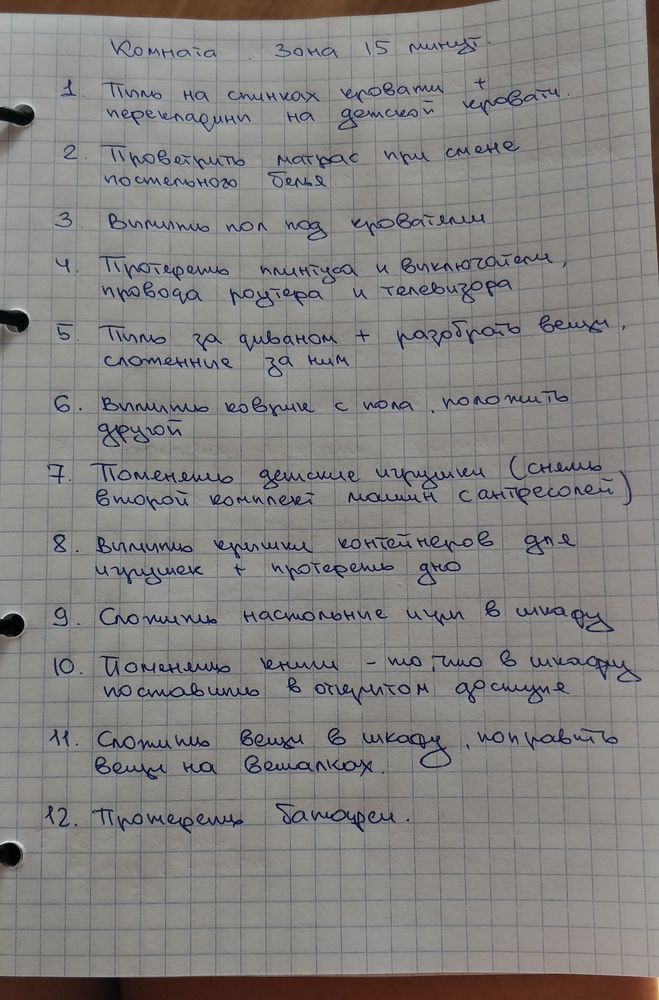 Комната. Зона 15 минут.
1. Пыль на спинках кровати +
перекладины на детской кровати.
2. Проветрить матрас при смене
постельного белья
3. Вымыть пол под кроватями
4. Протереть плинтуса и выключатели,
провода роутера и телевизора
5. Пыль за диваном + разобрать вещи,
сложенные за ним
6. Вымыть коврик с пола, положить
другой
7. Поменять детские игрушки (снять
второй комплект машин с антресолей)
8. Вымыть крышки контейнеров для
игрушек + протереть дно
9. Сложить настольные игры в шкафу
10. Поменять книги - то, что в шкафу
поставить в открытом доступе
11. Сложить вещи в шкафу, поправить
вещи на вешалках.
12. Протереть батареи.